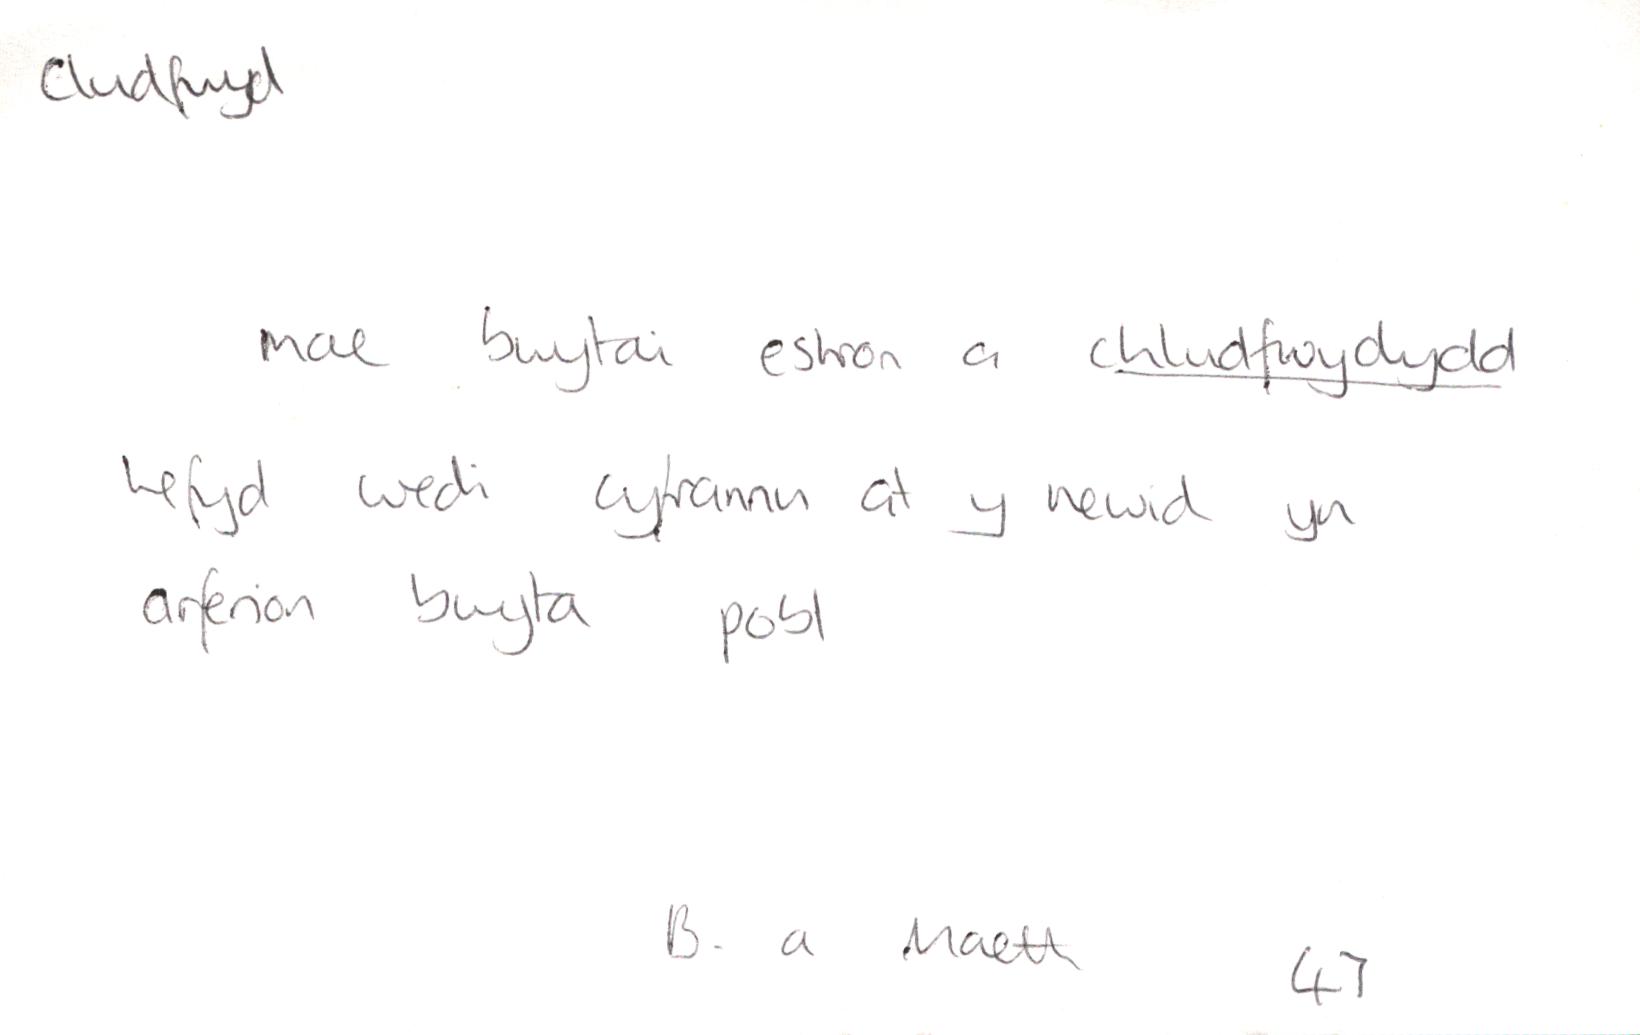 Cludfwyd
mae bwytai estron a chludfwydydd
hefyd wedi cyfrannu at y newid yn
arferion bwyta pobl
B. a Maeth 47